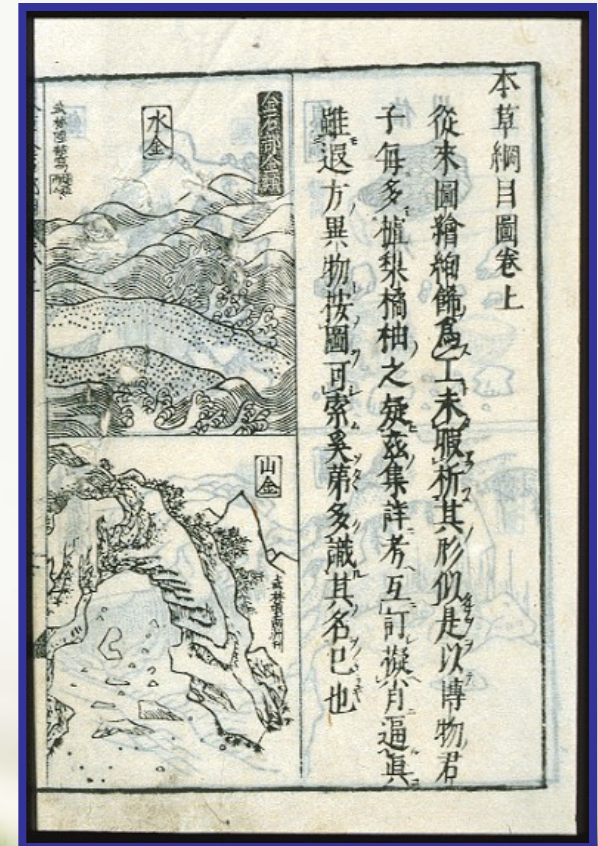 本草綱目圖卷上
從來圖繪絢飾爲工未暇析其形似是以博物君
子每多樝梨橘柚之疑茲集詳考互訂擬肖逼眞
雖遐方異物按圖可索奚第多識其名已也
金石部金類
水金
山金
武林項南洲刊